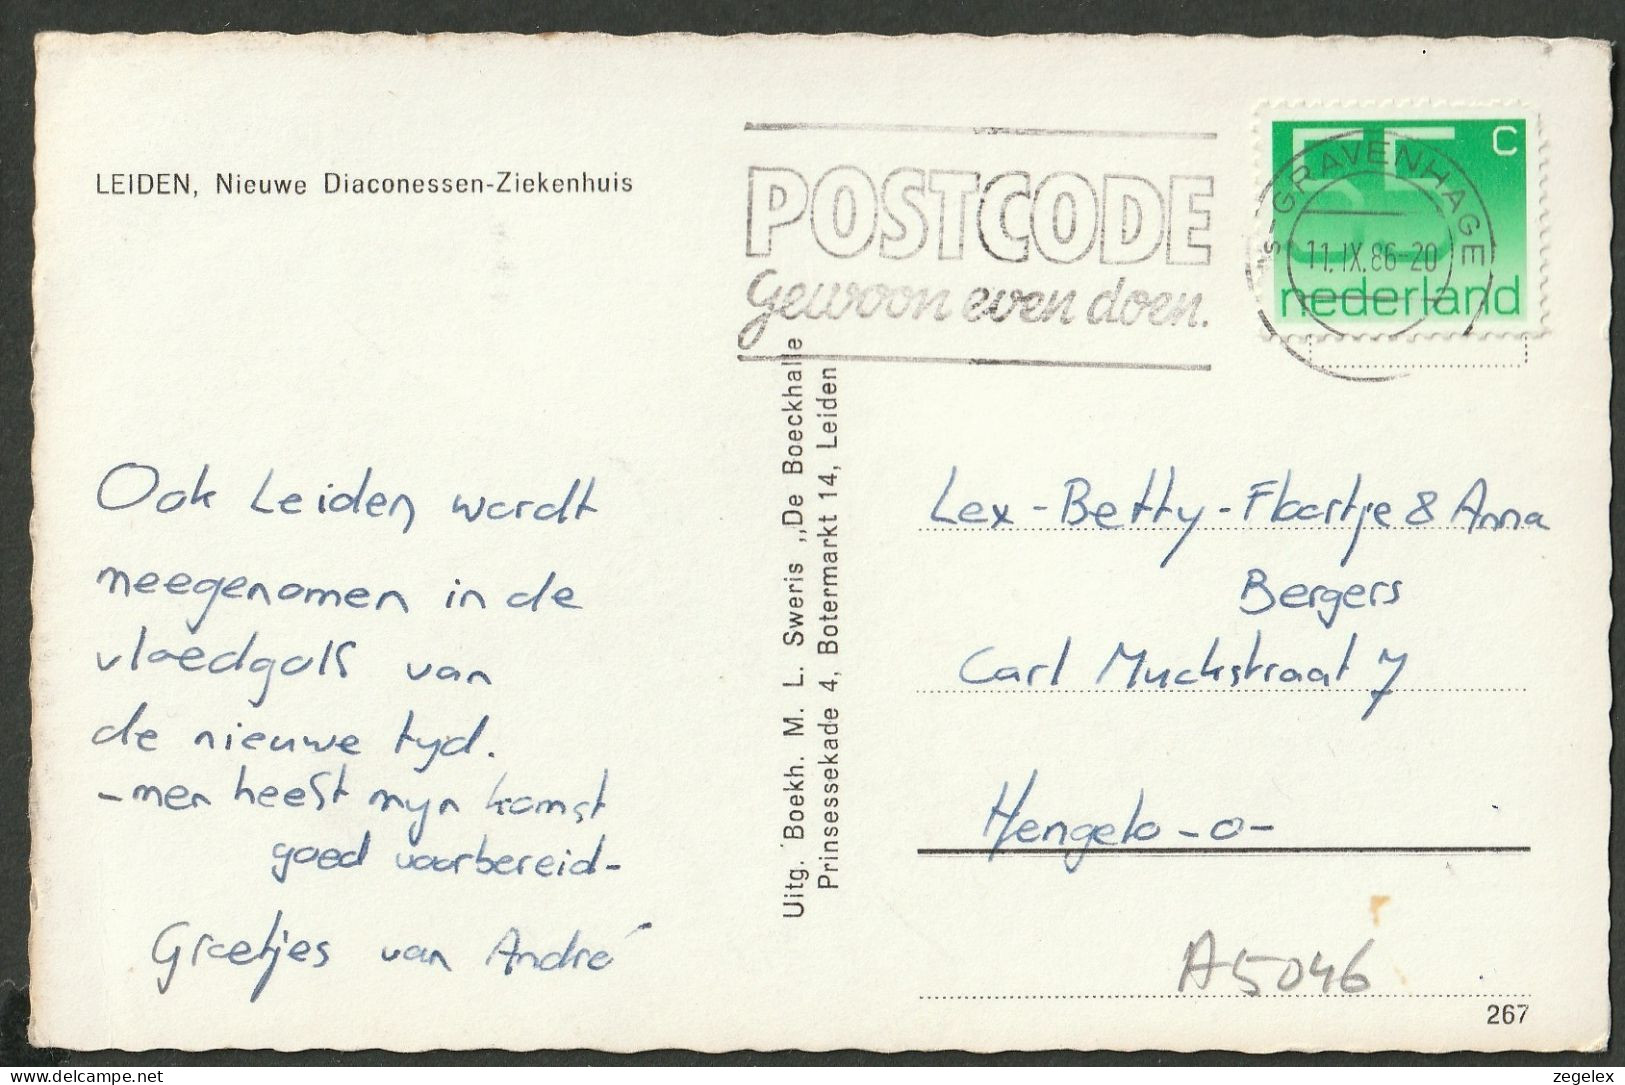 LEIDEN, Nieuwe Diaconessen-Ziekenhuis
POSTCODE
gewoon even doen.
55 C
's-GRAVENHAGE
11.IX.86-20
nederland
Ook Leiden wordt
meegenomen in de
vloedgolf van
de nieuwe tyd.
-men heeft myn komst
goed voorbereid-
Groetjes van André
Uitg. Boekh. M. L. Sweris ,,De Boeckhalle
Prinsessekade 4, Botermarkt 14, Leiden
Lex - Betty - Floortje & Anna
Bergers
Carl Muckstraat 7
Hengelo -o-
A5046
267
www.delcampe.net
zegelex